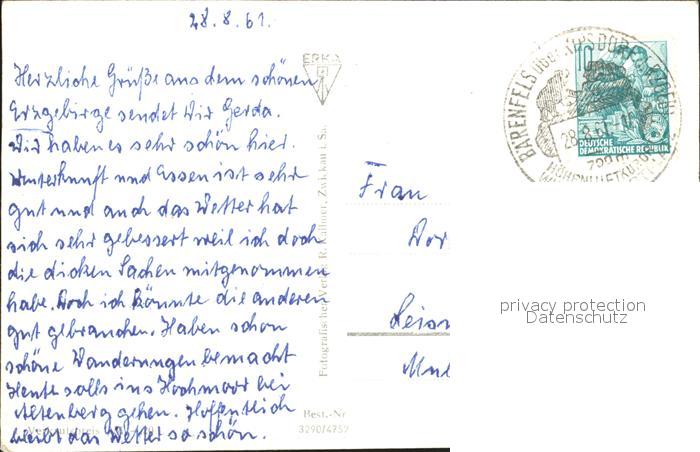 28.8.61.
Herzliche Grüße aus dem schönen
Erzgebirge sendet Dir Gerda.
Wir haben es sehr schön hier.
Unterkunft und Essen ist sehr
gut und auch das Wetter hat
sich sehr gebessert weil ich doch
die dicken Sachen mitgenommen
habe. Doch ich könnte die anderen
gut gebrauchen. Haben schon
schöne Wanderungen bemacht
Heute solls ins Hochmoor bei
Altenberg gehen. Hoffentlich
bleibt das Wetter so schön.
ERKA
Fotografischer Verlag R. Kallmer, Zwickau i. Sa.
Best.-Nr
3290/4752
Frau
Dor
BÄRENFELS ÜBER KIPSDORF
28.8.61
HÖHENLUFTKURORT
10
DEUTSCHE
DEMOKRATISCHE REPUBLIK
privacy protection
Datenschutz